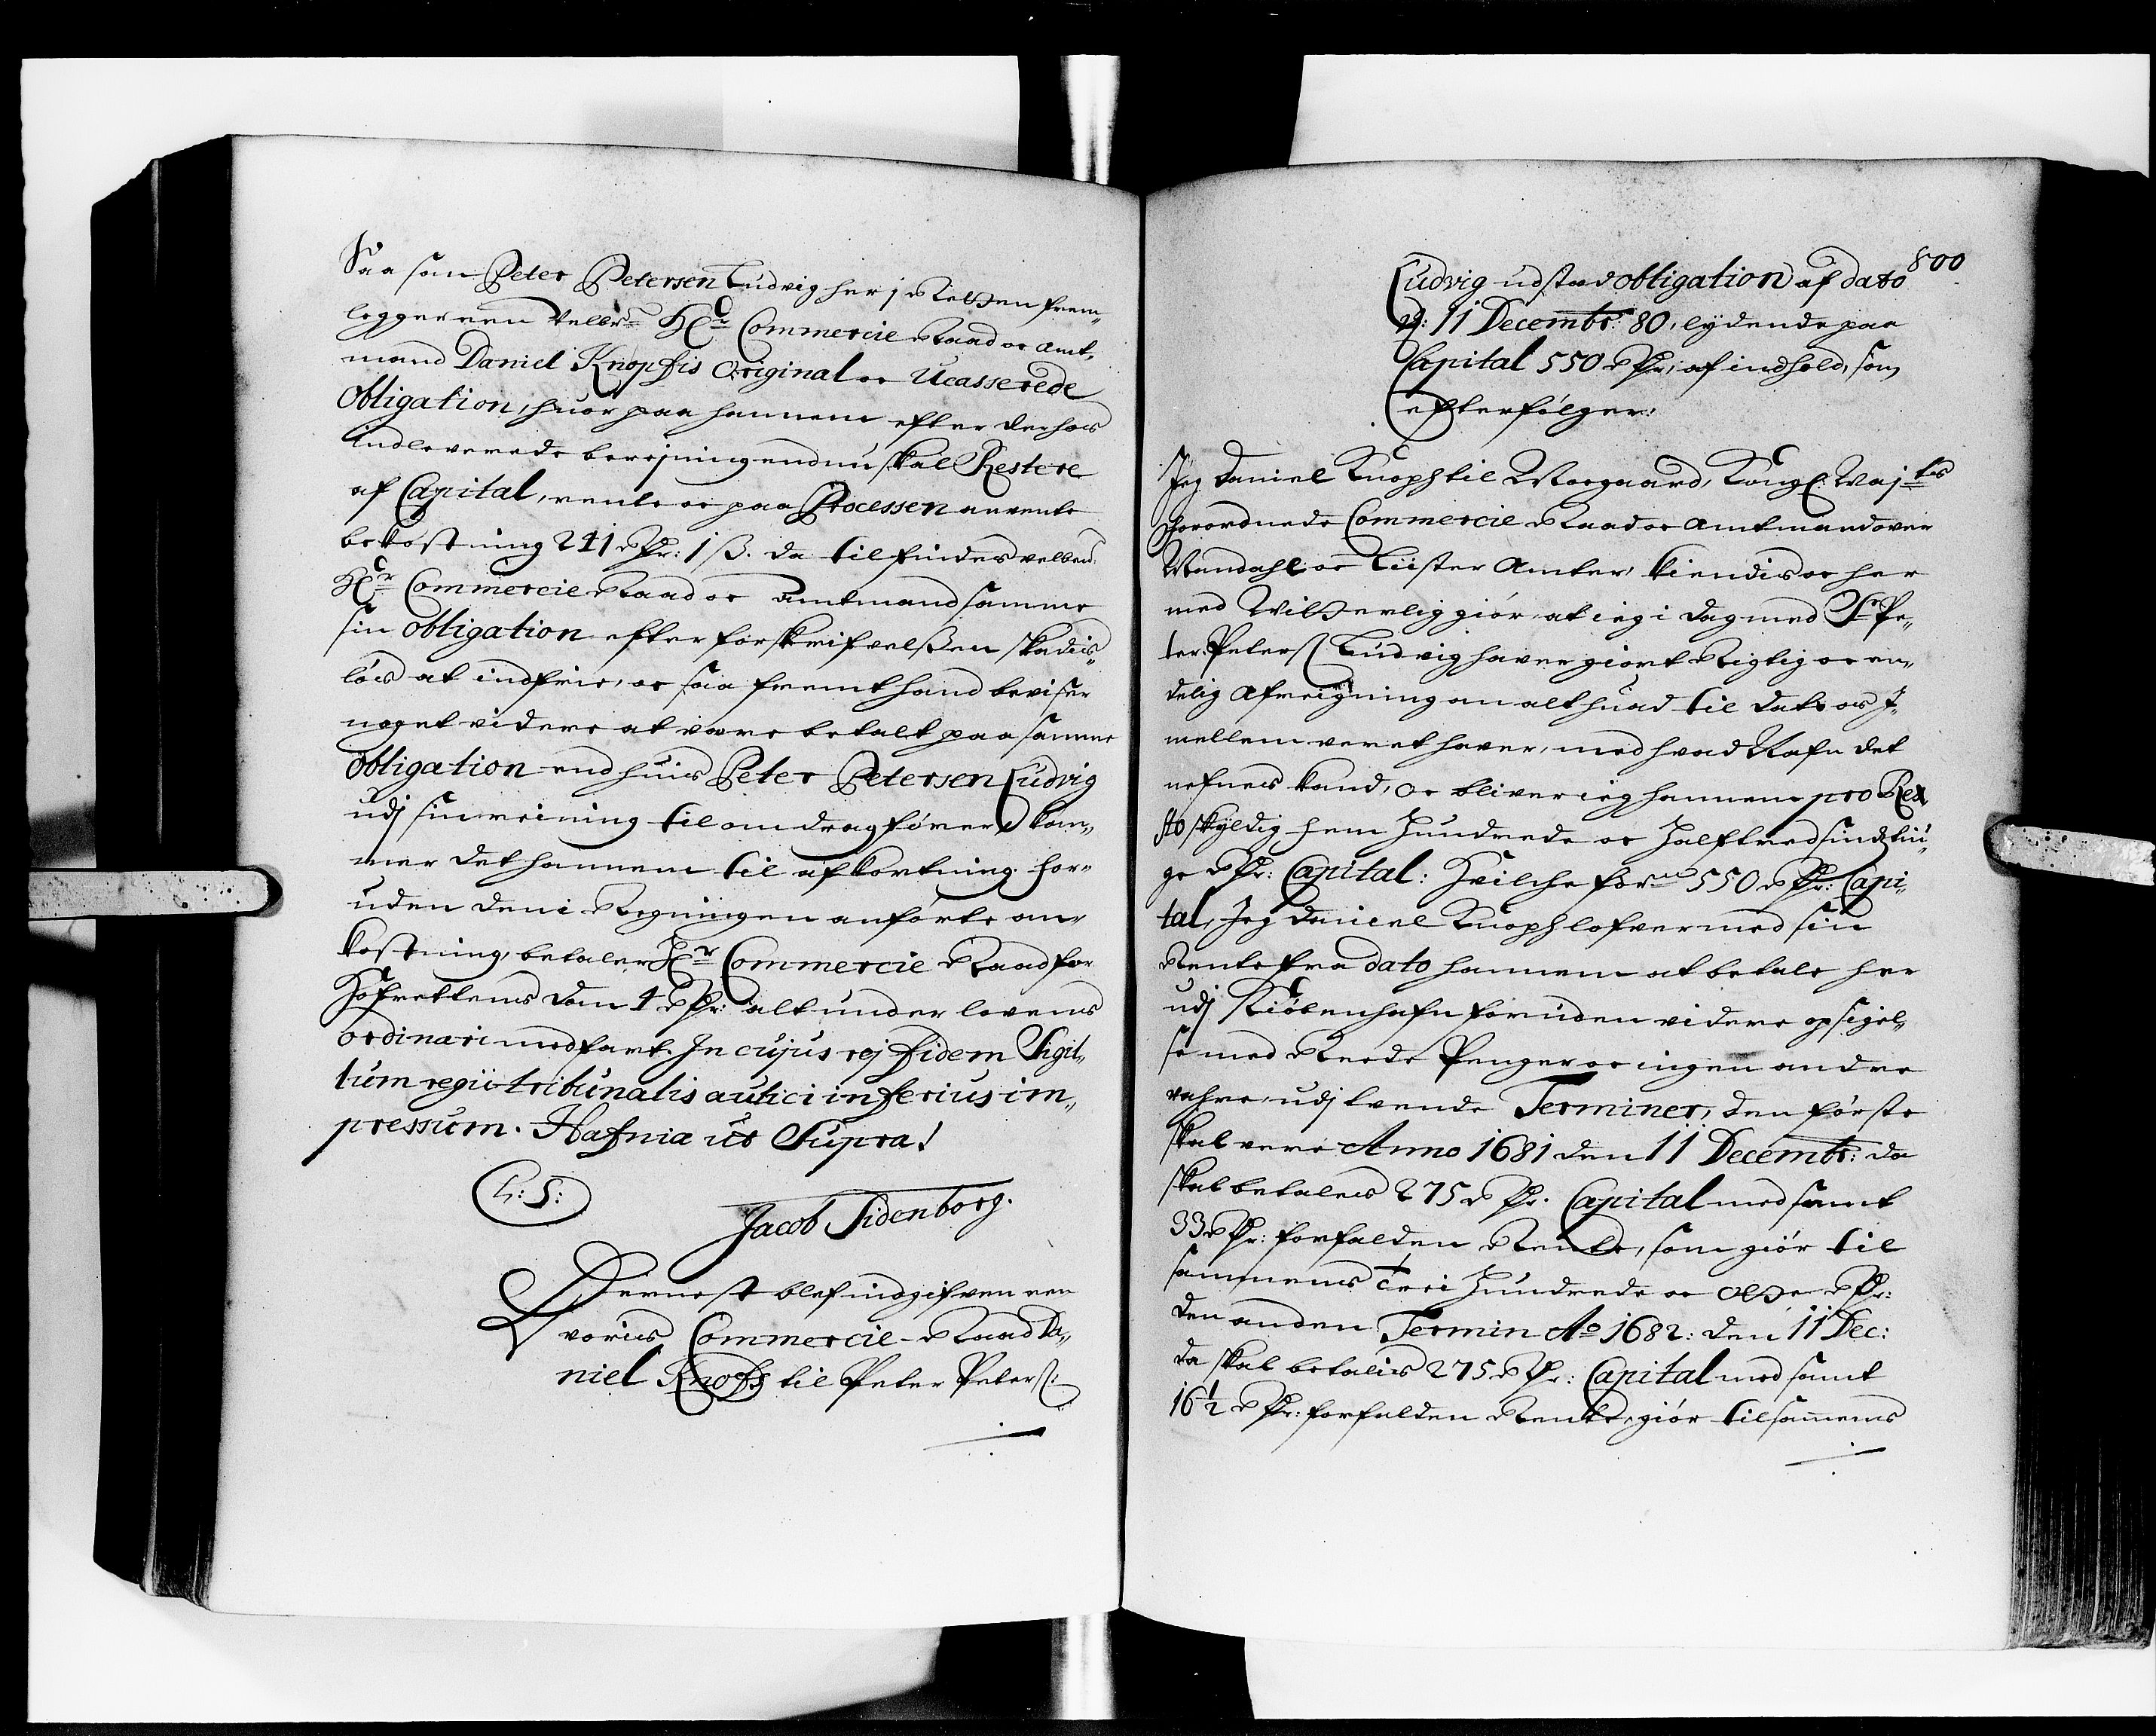 Saa som Peter Petersen Ludvig her j Retten frem„
legger een velbr: Hr: Commercie Raad oc Amt„
mand Daniel Knopfis Original oc Ucasserede
Obligation, huor paa hannem efter derhos
indleverede beregning endnu skal Restere
af Capital, rente oc paa Processen anvente
bekostning 241 Rdr: 1 ß. da tilfindes velbr:
Hr: Commercie Raad oc Amtmand samme
sin obligation efter forskrifvelßen skadis„
løs at indfrie, oc saa fremt hand beviser
noget videre at være betalt paa samme
Obligation end huis Peter Petersen Ludvig
udj sin reining til andrag fører, kom„
mer det hannem til afkortning. for„
uden den i Regningen anførte om„
kostning, betaler Hr: Commercie Raad for
Hofrettens dom 4 Rdr: alt under lovens
ordinari medfart. In cujus rej fidem Sigil„
lum regii tribunalis aulici inferius im„
pressum. Hafnia ut Supra!
L: S:
Jacob Sidenborg.
Dernest blef indgifven een
vorius Commercie-Raad Da„
niel Knofs til Peter Peters:
800
Ludvig udstæd obligation af dato
d: 11 Decembr: 80, lydende paa
Capital 550 Rdr, af indhold, som
efterfølger:
Jeg Daniel Knoph til Moegaard, Kongl: Maj:ts
forordnede Commercie Raad oc Amtmand over
Mandahl oc Liister Amter, kiendis oc her
med Witterlig giør, at ieg i dag med Sr Pe„
ter Peters: Ludvig haver giort Rigtig oc en„
delig Afreigning om alt huad til dato os J„
mellem veret haver, med hvad Nafn det
nefnes kand, oc bliver ieg hannem pro Re„
sto skyldig fem Hundrede oc Halftredsindstiu„
ge Rdr: Capital: Hvilche forne 550 Rdr: Capi„
tal, Jeg Daniel Knoph lofver med sin
Rente fra dato hannem at betale her
udj Kiøbenhafn foruden videre opsigel„
se med Reede Penger oc ingen andre
vahre, udj tvende Terminer, den første
skal vere Anno 1681 den 11 Decembr: da
skal betales 275 Rdr. Capital med samt
33 Rdr: forfalden Rente, som giør til
sammens Trei Hundrede oc Otte Rdr:
den anden Termin Ao 1682: den 11 Dec:
da skal betalis 275 Rdr: Capital med samt
16½ Rdr: forfalden Rente, giør tilsammens